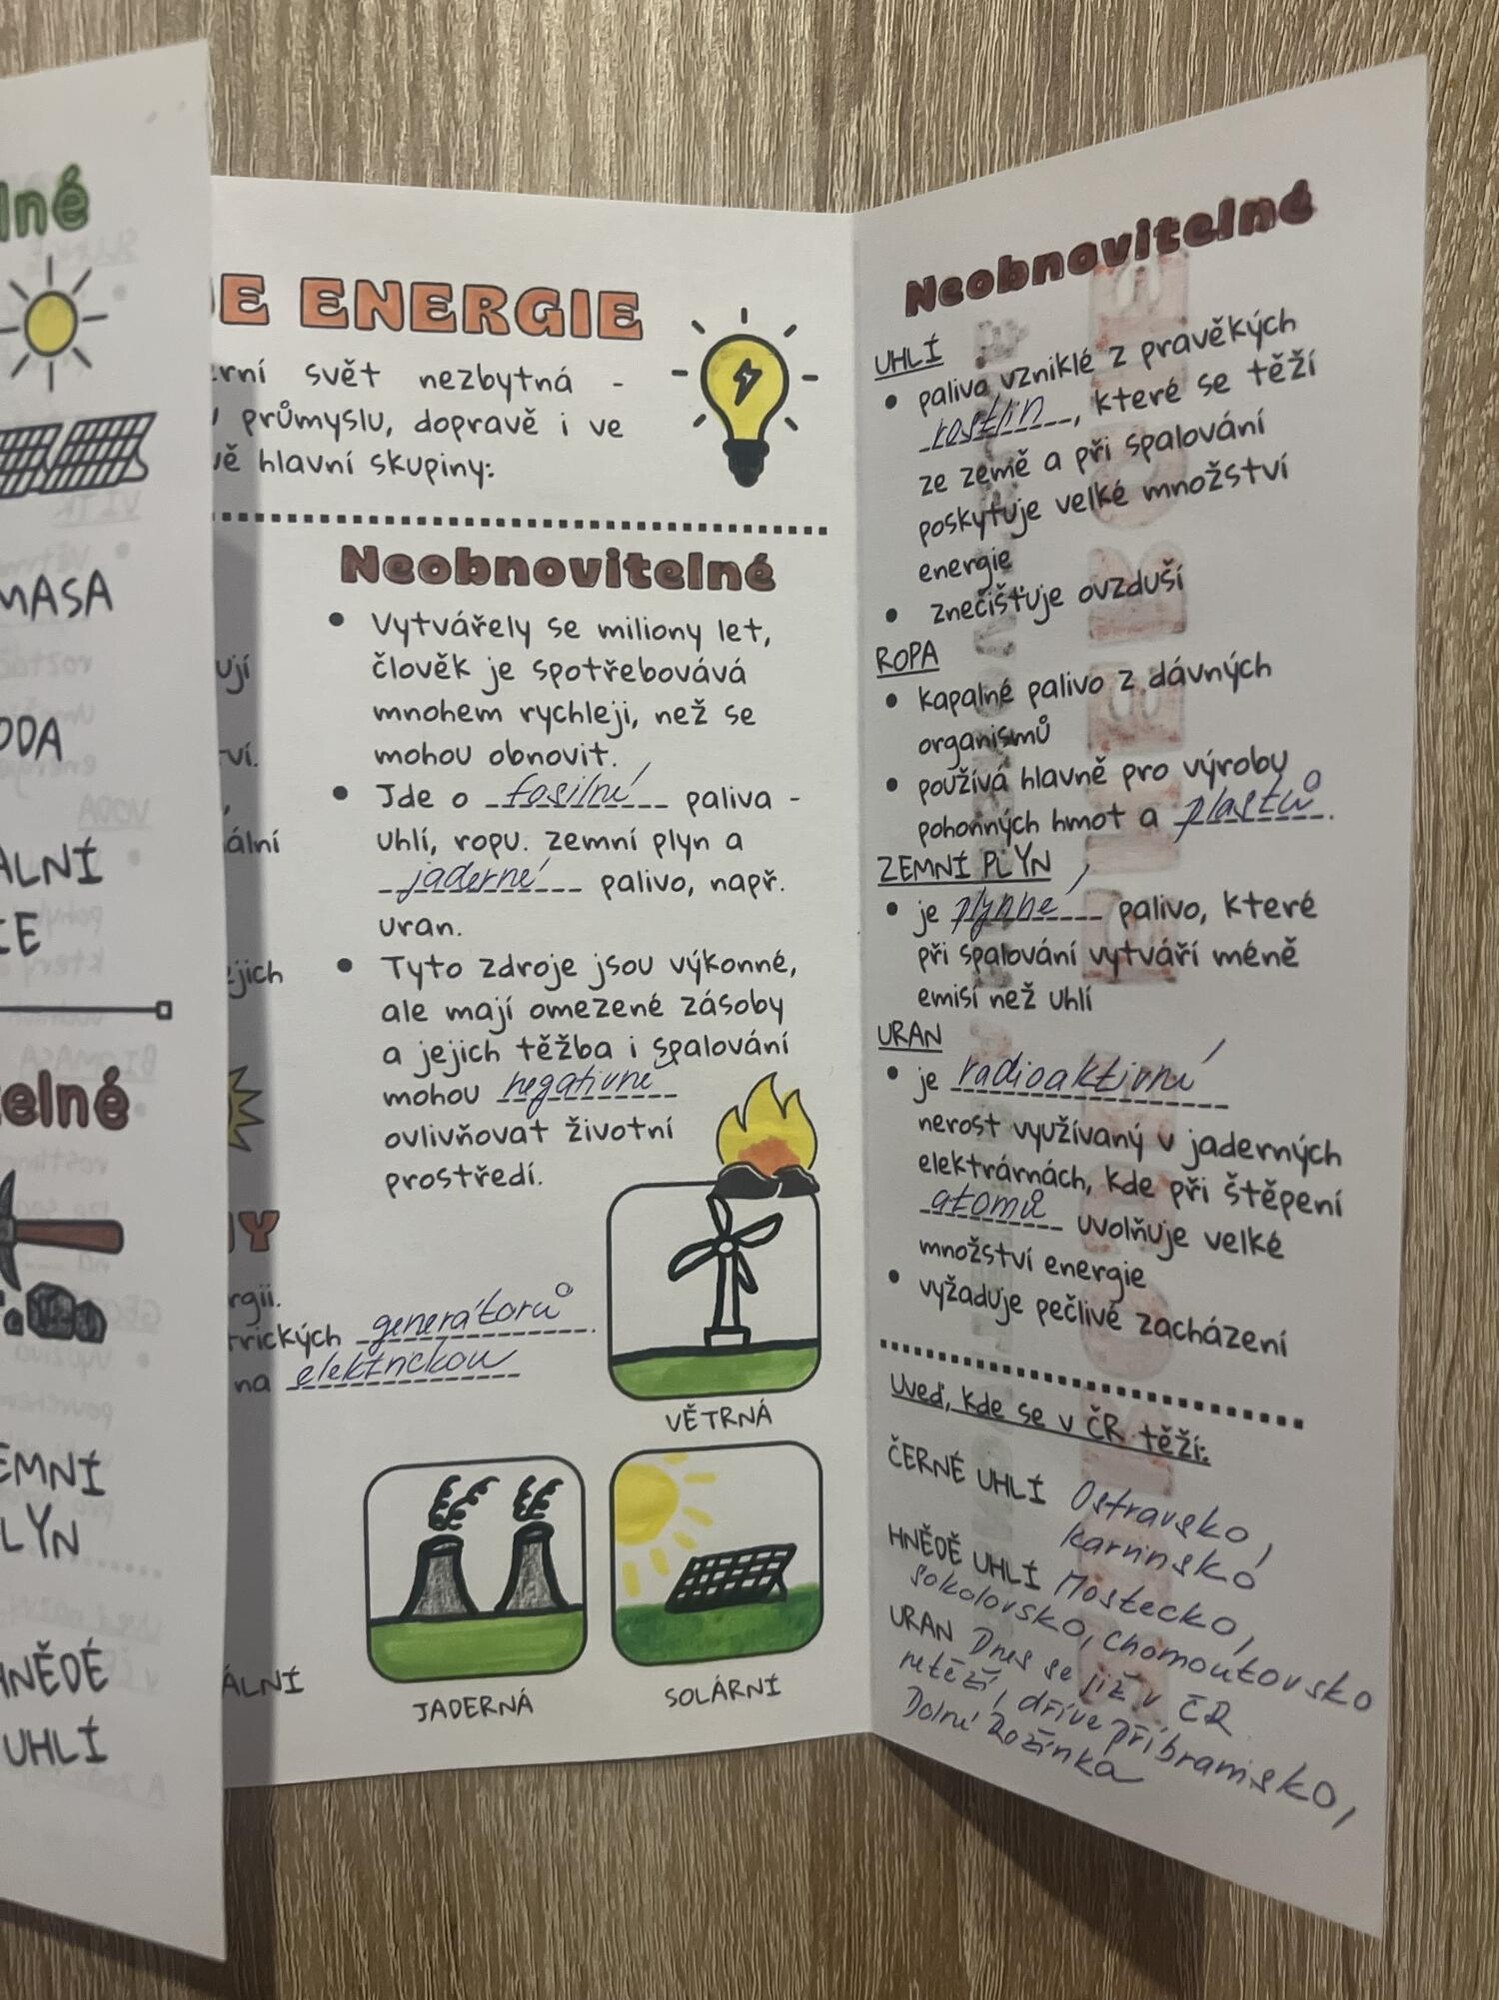 lné
MASA
ODA
ÁLNÍ
IE
telné
EMNÍ
LYN
HNĚDÉ
UHLÍ
JE ENERGIE
erní svět nezbytná -
průmyslu, dopravě i ve
vě hlavní skupiny:
ují
ví.
ální
ejich
NY
rgii.
trických generátorů.
na elektrickou
ÁLNÍ
Neobnovitelné
• Vytvářely se miliony let,
člověk je spotřebovává
mnohem rychleji, než se
mohou obnovit.
• Jde o fosilní paliva -
uhlí, ropu. zemní plyn a
jaderné palivo, např.
uran.
• Tyto zdroje jsou výkonné,
ale mají omezené zásoby
a jejich těžba i spalování
mohou negativně
ovlivňovat životní
prostředí.
VĚTRNÁ
JADERNÁ
SOLÁRNÍ
Neobnovitelné
UHLÍ
• paliva vzniklé z pravěkých
rostlin, které se těží
ze země a při spalování
poskytuje velké množství
energie
• znečišťuje ovzduší
ROPA
• kapalné palivo z dávných
organismů
• používá hlavně pro výroby
pohonných hmot a plastů.
ZEMNÍ PLYN
• je plynné palivo, které
při spalování vytváří méně
emisí než uhlí
URAN
• je radioaktivní
nerost využívaný v jaderných
elektrárnách, kde při štěpení
atomů uvolňuje velké
množství energie
• vyžaduje pečlivé zacházení
Uveď, kde se v ČR těží:
ČERNÉ UHLÍ Ostravsko,
karvinsko
HNĚDÉ UHLÍ Mostecko,
sokolovsko, chomoutovsko
URAN Dnes se již v ČR
netěží, dříve příbramsko,
Dolní Rožínka